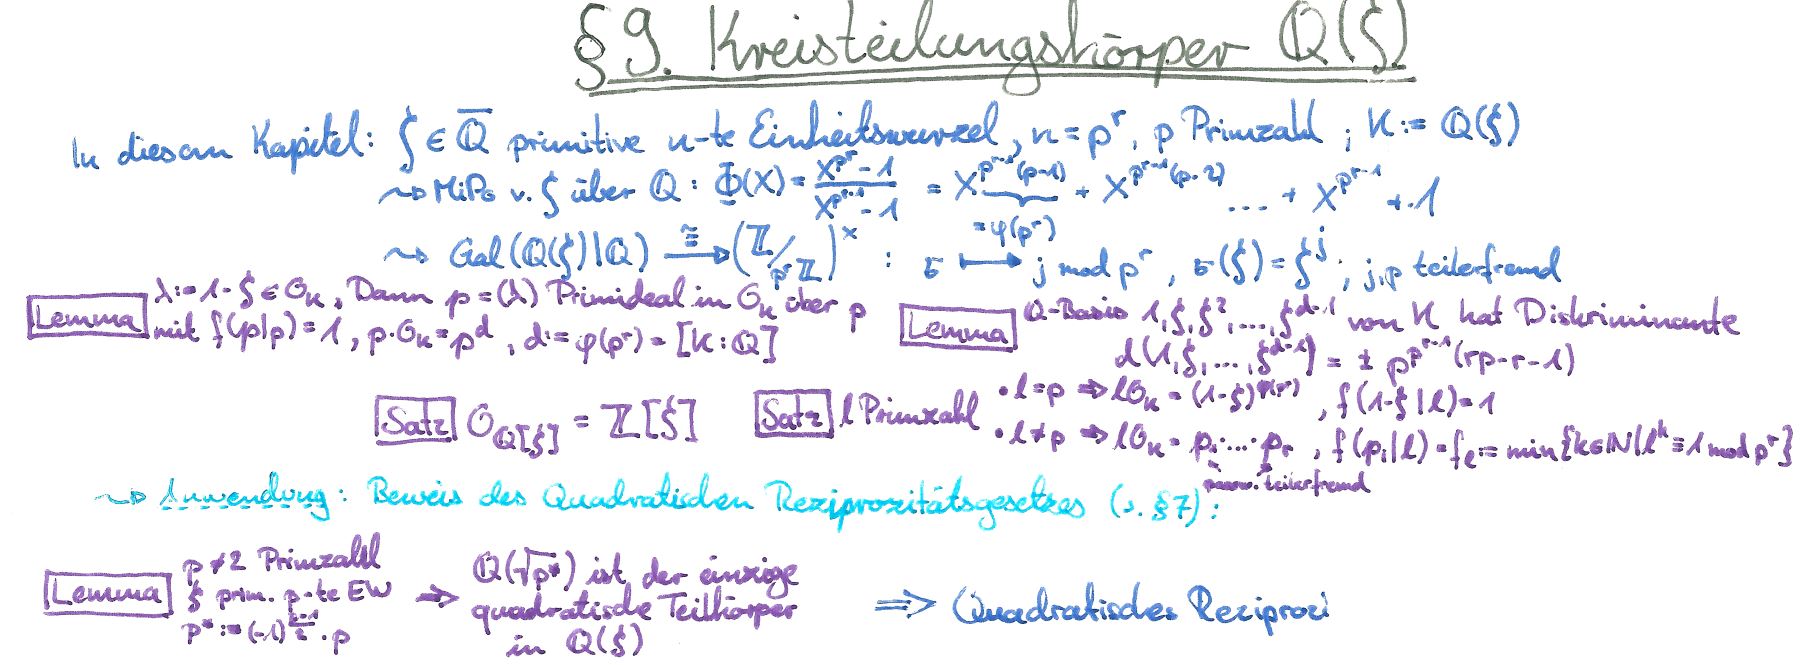 §9. Kreisteilungskörper ℚ(ξ)
In diesem Kapitel: ξ ∈ ℚ̅ primitive n-te Einheitswurzel, n = p^r, p Primzahl ; K := ℚ(ξ)
⇝ MiPo v. ξ über ℚ : Φ(X) = (X^{p^r} - 1)/(X^{p^{r-1}} - 1) = X^{p^{r-1}(p-1)} + X^{p^{r-1}(p-2)} ... + X^{p^{r-1}} + 1
= φ(p^r)
⇝ Gal(ℚ(ξ)|ℚ) ≅→ (ℤ/p^rℤ)^× : σ ↦ j mod p^r, σ(ξ) = ξ^j ; j,p teilerfremd
Lemma λ := 1-ξ ∈ O_K, Dann p = (λ) Primideal in O_K über p
mit f(p|p) = 1, p·O_K = p^d, d := φ(p^r) = [K:ℚ]
Lemma ℚ-Basis 1, ξ, ξ², ..., ξ^{d-1} von K hat Diskriminante
d(1, ξ, ..., ξ^{d-1}) = ± p^{p^{r-1}(rp-r-1)}
Satz O_{ℚ[ξ]} = ℤ[ξ]
Satz l Primzahl
• l = p ⇒ lO_K = (1-ξ)^{φ(p^r)}, f(1-ξ|l) = 1
• l ≠ p ⇒ lO_K = p_1 · ... · p_r, f(p_i|l) = f_l := min{k∈ℕ | l^k ≡ 1 mod p^r}
paarw. teilerfremd
⇝ Anwendung: Beweis des Quadratischen Reziprozitätsgesetzes (v. §7):
Lemma p ≠ 2 Primzahl
ξ prim. p-te EW
p* := (-1)^{(p-1)/2} · p
⇒ ℚ(√p*) ist der einzige
quadratische Teilkörper
in ℚ(ξ)
⇒ Quadratisches Reziprozi